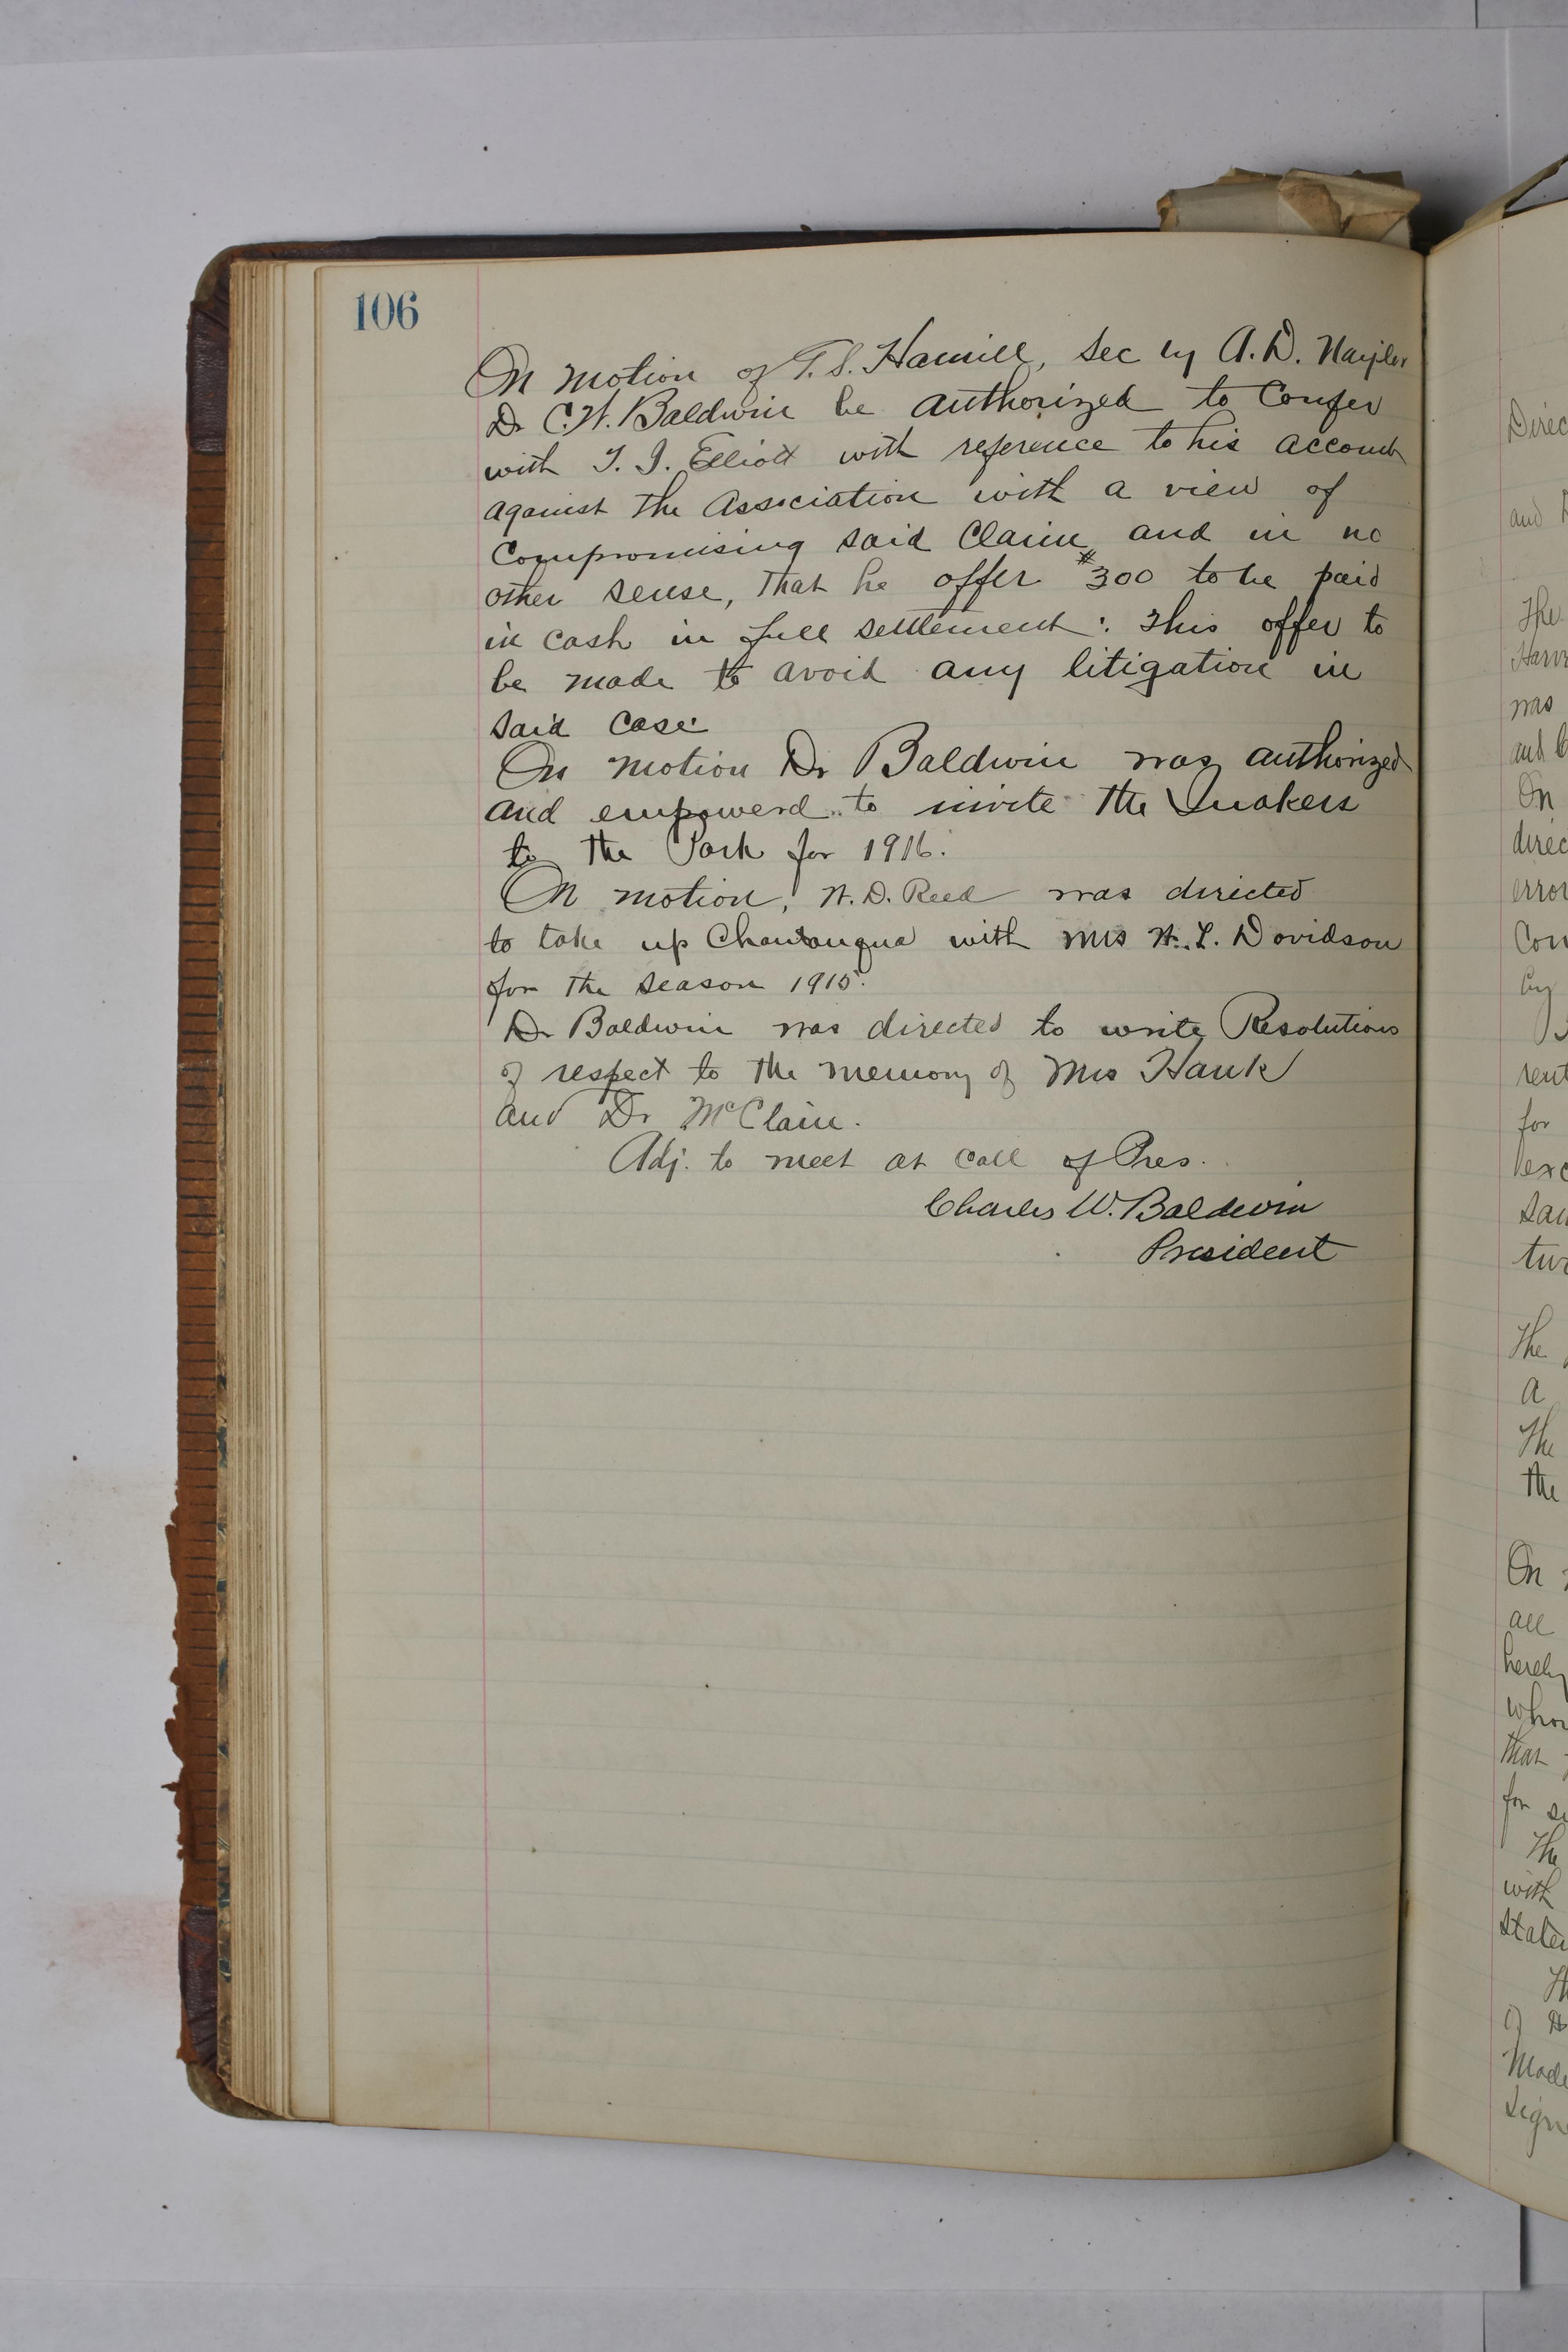 106
On motion of T. S. Hamill, Sec by A. D. Naylor
Dr C. W. Baldwin be authorized to Confer
with T. I. Elliott with reference to his account
against the Association with a view of
Compromising said Claim and in no
other sense, that he offer $300 to be paid
in cash in full settlement: This offer to
be made to avoid any litigation in
said case.
On motion Dr Baldwin was authorized
and empowerd to invite the Quakers
to the Park for 1916.
On motion, W. D. Reed was directed
to take up Chautauqua with Mrs W. L. Davidson
for the season 1915.
Dr Baldwin was directed to write Resolutions
of respect to the memory of Mrs Hank
and Dr McClain.
Adj. to meet at call of Pres.
Charles W. Baldwin
President
Direc
and
The
was
On
direc
error
Con
by
rent
for
exc
San
The
a
The
the
On
all
hereby
that
for
The
with
of
Made